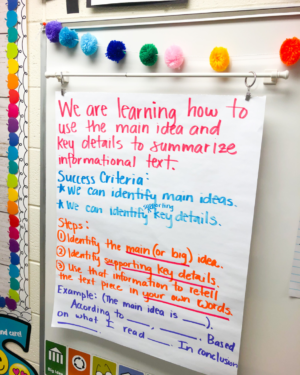 We are learning how to
use the main idea and
key details to summarize
informational text.
Success Criteria:
* We can identify main ideas.
supporting
* We can identify key details.
Steps:
① Identify the main (or big) idea.
② Identify supporting key details.
③ Use that information to retell
the text piece in your own words.
Example: (The main idea is ___).
According to ___, ___. Based
on what I read ___. In conclusion